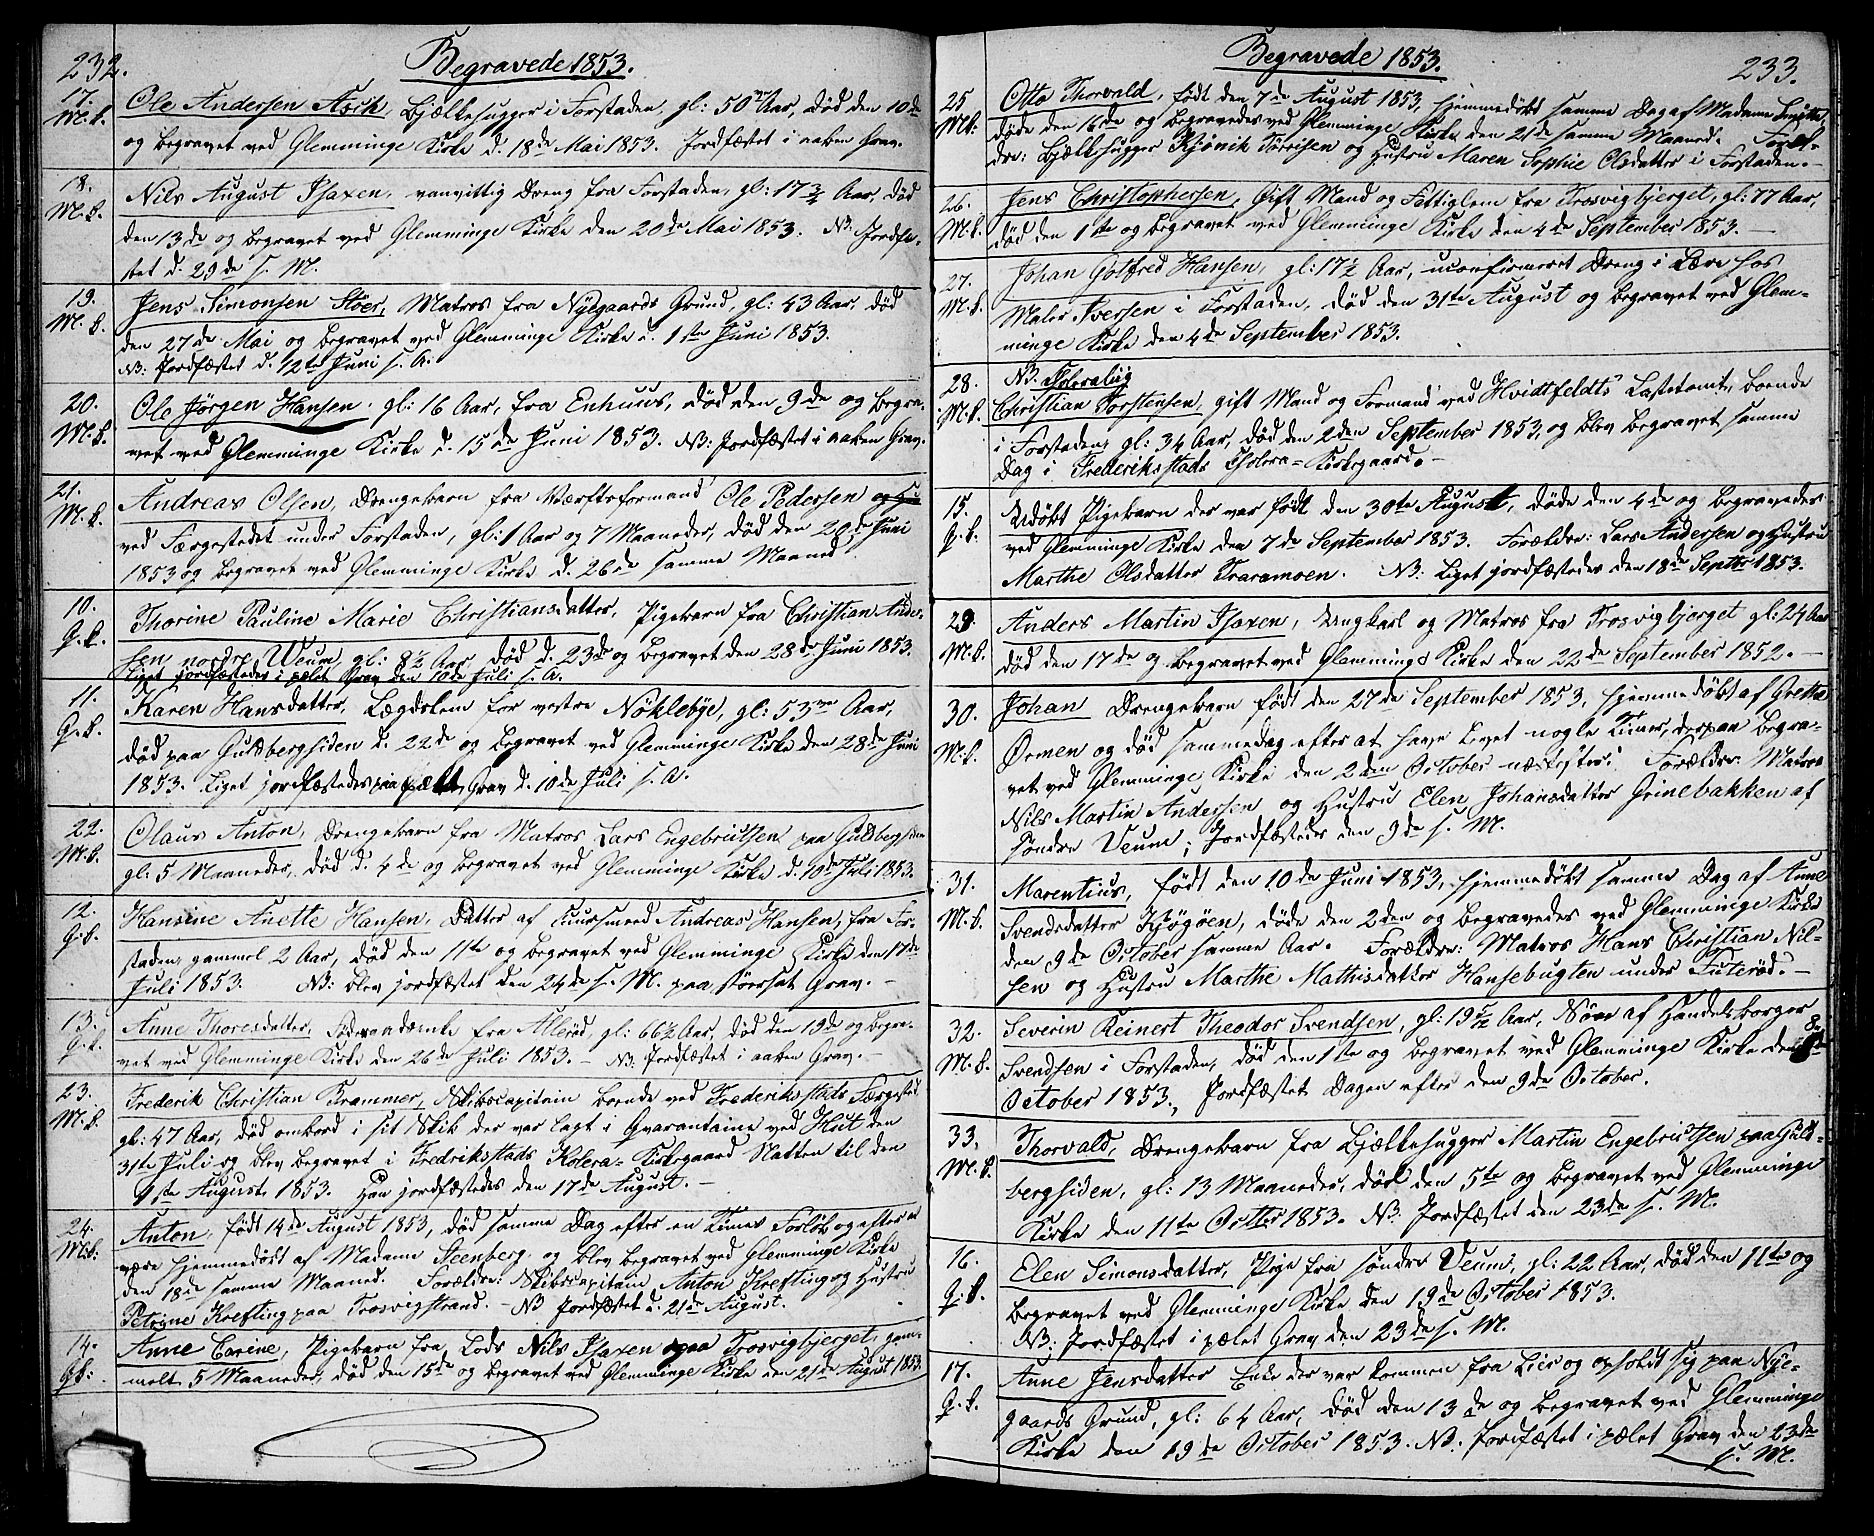 232.
Begravede 1853.
17. M.k. Ole Andersen Asch, Bjælkehugger i Forstaden, gl: 50 Aar, død den 10de
og begravet ved Glemminge Kirke d. 18de Mai 1853. Jordfæstet i aaben Grav.
18. M.k. Nils August Isaxen, vanvittig Dreng fra Forstaden, gl: 17 3/4 Aar, død
den 13de og begravet ved Glemminge Kirke den 20de Mai 1853. NB: Jordfæ-
stet d. 29de s. M.
19. M.k. Jens Simonsen Stoer, Matros fra Nygaards Grund, gl: 43 Aar, død
den 27de Mai og begravet ved Glemminge Kirke d. 1ste Juni 1853.
NB: Jordfæstet d. 12te Juni s. A.
20. M.k. Ole Jørgen Hansen, gl: 16 Aar, fra Enhuus, død den 9de og begra-
vet ved Glemminge Kirke d. 15de Juni 1853. NB: Jordfæstet i aaben Grav.
21. M.k. Andreas Olsen, Drengebarn fra Værftsformand Ole Pedersen
ved Færgestedet under Forstaden, gl: 1 Aar og 7 Maaneder, død den 20de Juni
1853 og begravet ved Glemminge Kirke d. 26de samme Maaned
10. Q.k. Thorine Pauline Marie Christiansdatter, Pigebarn fra Christian Ander-
sen nordre Veum, gl: 8½ Aar, død d. 23de og begravet den 28de Juni 1853.
Liget jordfæstedes i pælet Grav den 10de Juli s. A.
11. Q.k. Karen Hansdatter, Lægdslem for vestre Nøklebye, gl: 53 Aar,
død paa Guldbergsiden d. 22de og begravet ved Glemminge Kirke den 28de Juni
1853. Liget jordfæstedes paa pælet Grav d. 10de Juli s. A.
22. M.k. Olaus Anton, Drengebarn fra Matros Lars Engebrietsen paa Guldbergsiden
gl: 5 Maaneder, død d. 4de og begravet ved Glemminge Kirke d. 10de Juli 1853.
12. Q.k. Hansine Anette Hansen, Datter af Cuursmeed Andreas Hansen, fra For-
staden, gammel 2 Aar, død den 11te og begravet ved Glemminge Kirke den 17de
Juli 1853. NB: blev jordfæstet den 24de s. M. paa Grav.
13. Q.k. Anne Thoresdatter, fra Allerød, gl: 66½ Aar, død den 19de og begra-
vet ved Glemminge Kirke den 26de Juli 1853. – NB: Jordfæstet i aaben Grav.
23. M.k. Frederik Christian Krammer, Skibscapitain boende ved Frederiksstads Færgested
gl: 47 Aar, død ombord i sit Skib der var lagt i Qvarantaine ved Hut den
31te Juli og blev begravet i Fredriksstads Kolera-Kirkegaard Natten til den
1ste August 1853. Han jordfæstedes den 17de August. –
24. M.k: Anton, født 14de August 1853, død samme Dag efter en Times Forløb og efter at
være hjemmedøbt af Madame Steenberg og blev begravet ved Glemminge Kirke
den 18de samme Maaned. Forældre: Skibscapitain Anton Krefting og Hustru
Petrine Krefting paa Trosvigstrand. – NB Jordfæstet d. 21de August.
14. Qk: Anne Carine, Pigebarn fra Lods Nils Isaxen paa Trosvigbjerget, gam-
melt 5 Maaneder, død den 15de og begravet ved Glemminge Kirke den 21de August 1853.
Begravede 1853.
233.
25 Mk: Otto Thorvald, født den 7de August 1853, hjemmedøbt samme Dag af Madame Smith,
døde den 16de og begravedes ved Glemminge Kirke den 21de samme Maaned. Foræl-
dre: Bjælkehugger Kjønik Torrisen og Hustru Maren Sophie Olsdatter i Forstaden. –
26. M.k. Jens Christophersen, Gift Mand og Fattiglem fra Trosvigbjerget, gl: 77 Aar,
død den 1ste og begravet ved Glemminge Kirke den 4de September 1853. –
27. M.k. Johan Gotfred Hansen, gl: 17½ Aar, uconfirmeret Dreng i Lære hos
Maler Iversen i Forstaden, død den 31te August og begravet ved Glem-
minge Kirke den 4de September 1853.
28. M.k. NB. Choleralig
Christian Torstensen, gift Mand og Formand ved Hvidtfeldts Lastetomt, boende
i Forstaden, gl: 34 Aar, død den 2den September 1853, og blev begravet samme
Dag i Frederiksstads Cholera-Kirkegaard. –
15. Q.k. Udøbt Pigebarn der var født den 30te August, døde den 4de og begravedes
ved Glemminge Kirke den 7de September 1853. Forældre: Lars Andersen og Hustru
Marthe Olsdatter Traramoen. NB: Liget jordfæstedes den 18de Septbr 1853.
29 M.k. Anders Martin Isaxen, Ungkarl og Matros fra Trosvigbjerget gl: 24 Aar
død den 17de og begravet ved Glemminge Kirke den 22de September 1852. –
30. M.k. Johan Drengebarn født den 27de September 1853, hjemmedøbt af Grethe
Ormen og død sammedag efter at have levet nogle Timer, derpaa begra-
vet ved Glemminge Kirke den 2den October næstefter. Forældre: Matros
Nils Martin Andersen og Hustru Elen Johansdatter Grinebakken af
søndre Veum; Jordfæstedes den 9de s. M.
31. M.k. Marentius, født den 10de Juni 1853, hjemmedøbt samme Dag af Anne
Svendsdatter Kjøgøen, døde den 2den og begravedes ved Glemminge Kirke
den 9de October samme Aar. Forældre: Matros Hans Christian Nil-
sen og Hustru Marthe Mathisdatter Hansebugten under Futerød. –
32. M.k. Severin Reinert Theodor Svendsen, gl: 19 5/12 Aar, Søn af Handelsborger
Svendsen i Forstaden, død den 1ste og begravet ved Glemminge Kirke den 8de
October 1853., Jordfæstet Dagen efter den 9de October.
33. M.k. Thorvald, Drengebarn fra Bjælkehugger Martin Engebrietsen paa Guld-
bergsiden, gl: 13 Maaneder, død den 5te og begravet ved Glemminge
Kirke den 11te Octbr 1853. NB: Jordfæstet den 23de s. M.
16. Q.k. Elen Simonsdatter, Pige fra søndre Veum, gl: 22 Aar, død den 11te og
begravet ved Glemminge Kirke den 19de October 1853.
NB: Jordfæstet i pælet Grav den 23de s. M.
17. Q.k. Anne Jensdatter Enke der var kommen fra Lier og opholdt sig paa Nye-
gaards Grund, gl: 64 Aar, død den 13de og begravet ved Glemminge
Kirke den 19de October 1853. NB. Jordfæstet i pælet Grav den 23de
s. M.